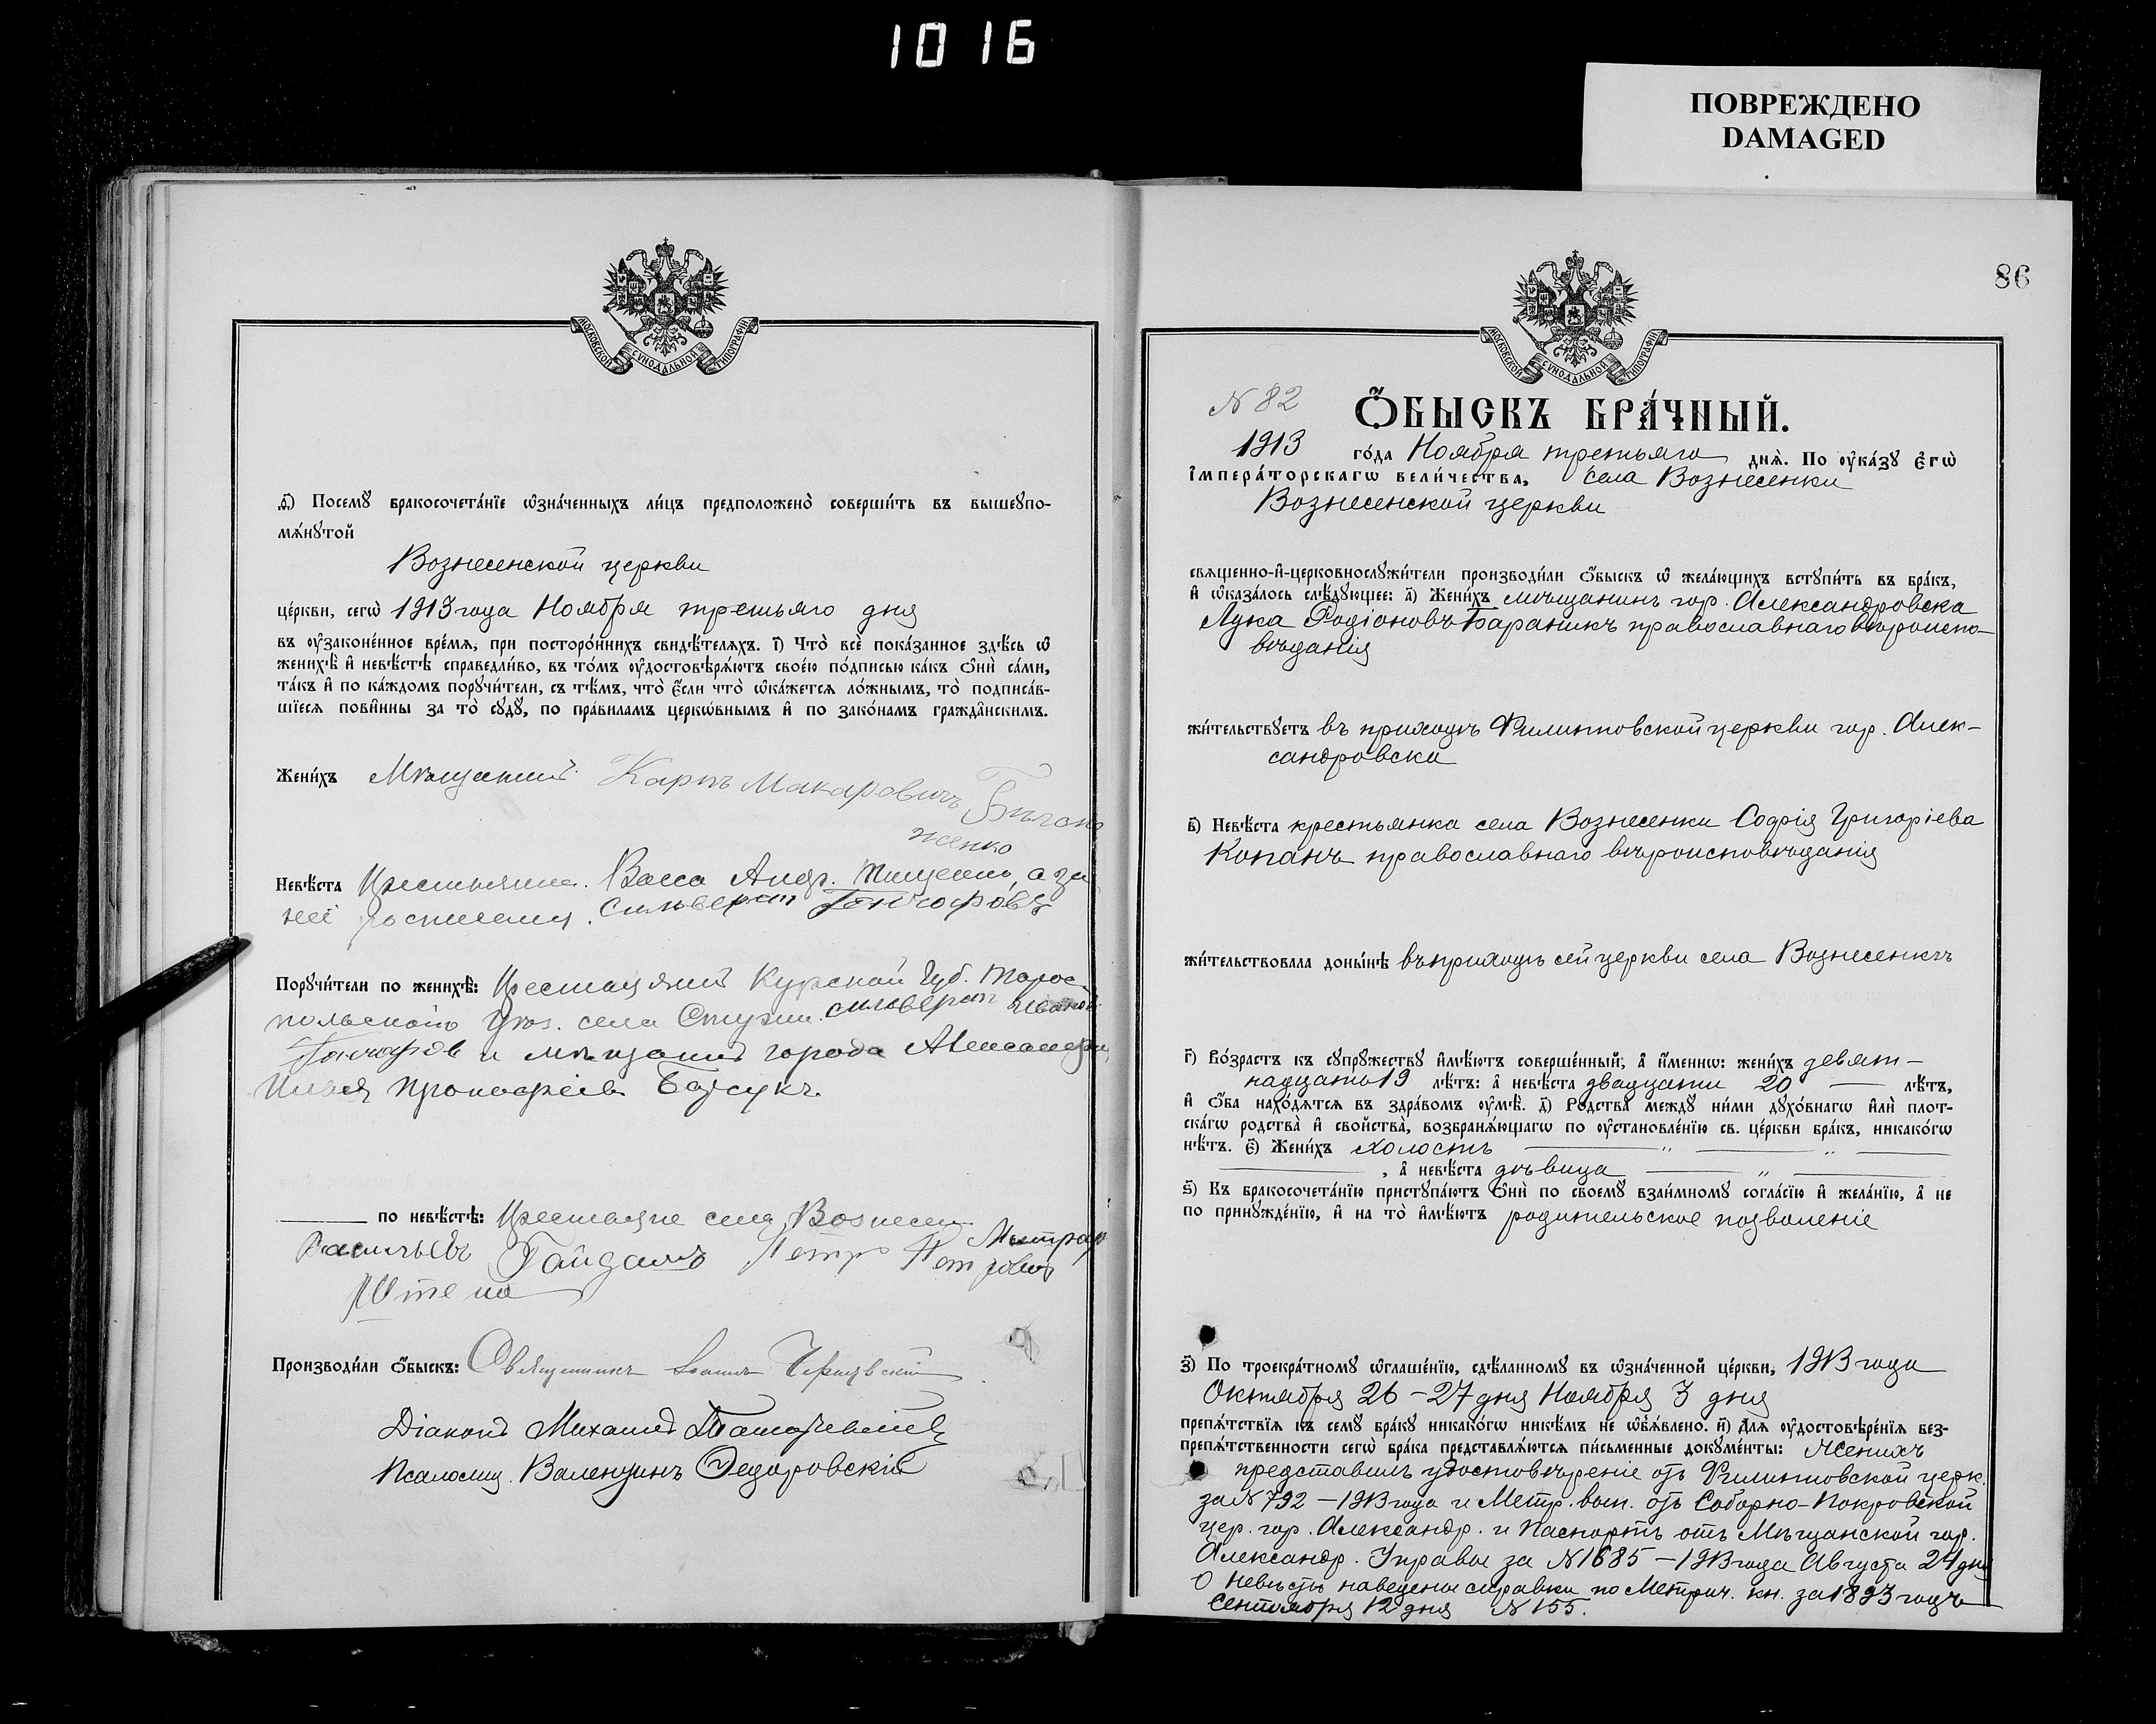 1016
ПОВРЕЖДЕНО
DAMAGED
МОСКОВСКОЙ СѴНОДАЛЬНОЙ ТИПОГРАФІИ
ѳ҃) Посемꙋ̀ бракосочета́нїе ѡ҆зна́ченныхъ ли́цъ предположено̀ соверши́ть въ вышеꙋпо-
мѧ́нꙋтой
Вознесенской церкви
це́ркви, сегѡ̀ 1913 года Ноября третьяго дня
въ ᲂу҆законе́нное вре́мѧ, при посторо́ннихъ свидѣ́телѧхъ. і҃) Что̀ всѐ пока́занное здѣ́сь ѡ҆
женихѣ̀ и҆ невѣ́стѣ справедли́во, въ то́мъ ᲂу҆достовѣрѧ́ютъ свое́ю по́дписью ка́къ ѻ҆нѝ са́ми,
та́къ и҆ по ка́ждомъ порꙋчи́тели, съ тѣ́мъ, что̀ є҆́сли что̀ ѡ҆ка́жетсѧ ло́жнымъ, то̀ подписа́в-
шїесѧ пови́нны за то̀ сꙋдꙋ̀, по пра́виламъ церко́внымъ и҆ по зако́намъ гражда́нскимъ.
Жени́хъ Мѣщанинъ Карпъ Макаровичъ
женко
Невѣ́ста Васса Андр. Тищенко, а за
неё Сильверст Гончаровъ
Порꙋчи́тели по женихѣ̀: Курской Губ.
села Сильверст Иванов
Гончаров и мѣщанин города Александр.
Илья Прокофіев Барсукъ.
по невѣ́стѣ: Крестьяне села Вознесен.
Васильевъ Гайдамъ Петр Петровъ
Производи́ли ѻ҆́быскъ: Священникъ Іоаннъ
Діаконъ Михаилъ
Псаломщ. Валентинъ Федоровскій
86
МОСКОВСКОЙ СѴНОДАЛЬНОЙ ТИПОГРАФІИ
N 82
Ѻ҆́БЫСКЪ БРА́ЧНЫЙ.
1913 го́да Ноября третьяго днѧ̀. По ᲂу҆ка́зꙋ є҆гѡ̀
і҆мпера́торскагѡ вели́чества, села Вознесенки
Вознесенской церкви
свѧщенно-и҆-церковнослꙋжи́тели производи́ли ѻ҆́быскъ ѡ҆ жела́ющихъ встꙋпи́ть въ бра́къ,
и҆ ѡ҆каза́лось слѣ́дꙋющее: а҃) Жени́хъ мѣщанинъ гор. Александровска
Лука Родіоновъ Бараникъ православнаго вѣроиспо-
вѣданія
жи́тельствꙋетъ въ приходѣ Филипповской церкви гор. Алек-
сандровска
в҃) Невѣ́ста крестьянка села Вознесенки Софія Григоріева
Копанъ православнаго вѣроисповѣданія
жи́тельствовала доны́нѣ въ приходѣ сей церкви села Вознесенкѣ
г҃) Во́зрастъ къ сꙋпрꙋ́жествꙋ и҆мѣ́ютъ соверше́нный, а҆ и҆́меннѡ: жени́хъ девят-
надцати 19 лѣ́тъ: а҆ невѣ́ста двадцати 20 лѣ́тъ,
и҆ ѻ҆́ба нахо́дѧтсѧ въ здра́вомъ ᲂу҆мѣ̀. д҃) Родства̀ междꙋ ни́ми дꙋхо́внагѡ и҆лѝ плот-
ска́гѡ родства̀ и҆ сво́йства̀, возбранѧ́ющагѡ по ᲂу҆становле́нїю св. це́ркви бра́къ, никако́гѡ
нѣ́тъ. є҃) Жени́хъ холостъ
, а҆ невѣ́ста дѣвица
ѕ҃) Къ бракосочета́нїю пристꙋпа́ютъ ѻ҆нѝ по своемꙋ̀ взаи́мномꙋ согла́сїю и҆ жела́нїю, а҆ не
по принꙋжде́нїю, и҆ на то̀ и҆мѣ́ютъ родительское позволеніе
з҃) По троекра́тномꙋ ѡ҆глаше́нїю, сдѣ́ланномꙋ въ ѡ҆зна́ченной це́ркви, 1913 года
Октября 26 – 27 дня Ноября 3 дня
препѧ́тствїѧ къ семꙋ̀ бра́кꙋ никако́гѡ никѣ́мъ не ѡ҆б̾ѧ́влено. и҃) Длѧ ᲂу҆достовѣре́нїѧ без-
препѧ́тственности сегѡ̀ бра́ка представлѧ́ютсѧ пи́сьменные докꙋме́нты: Женихъ
представилъ удостовѣреніе отъ Филипповской церк.
за N 792 – 1913 года и Метр. вып. отъ Соборно-Покровской
цер. гор. Александр. и Паспортъ отъ Мѣщанской гор.
Александр. Управы за N 1685 – 1913 года Августа 24 дня
О невѣстѣ наведены справки по Метрич. кн. за 1893 годъ
Сентября 12 дня N 155.